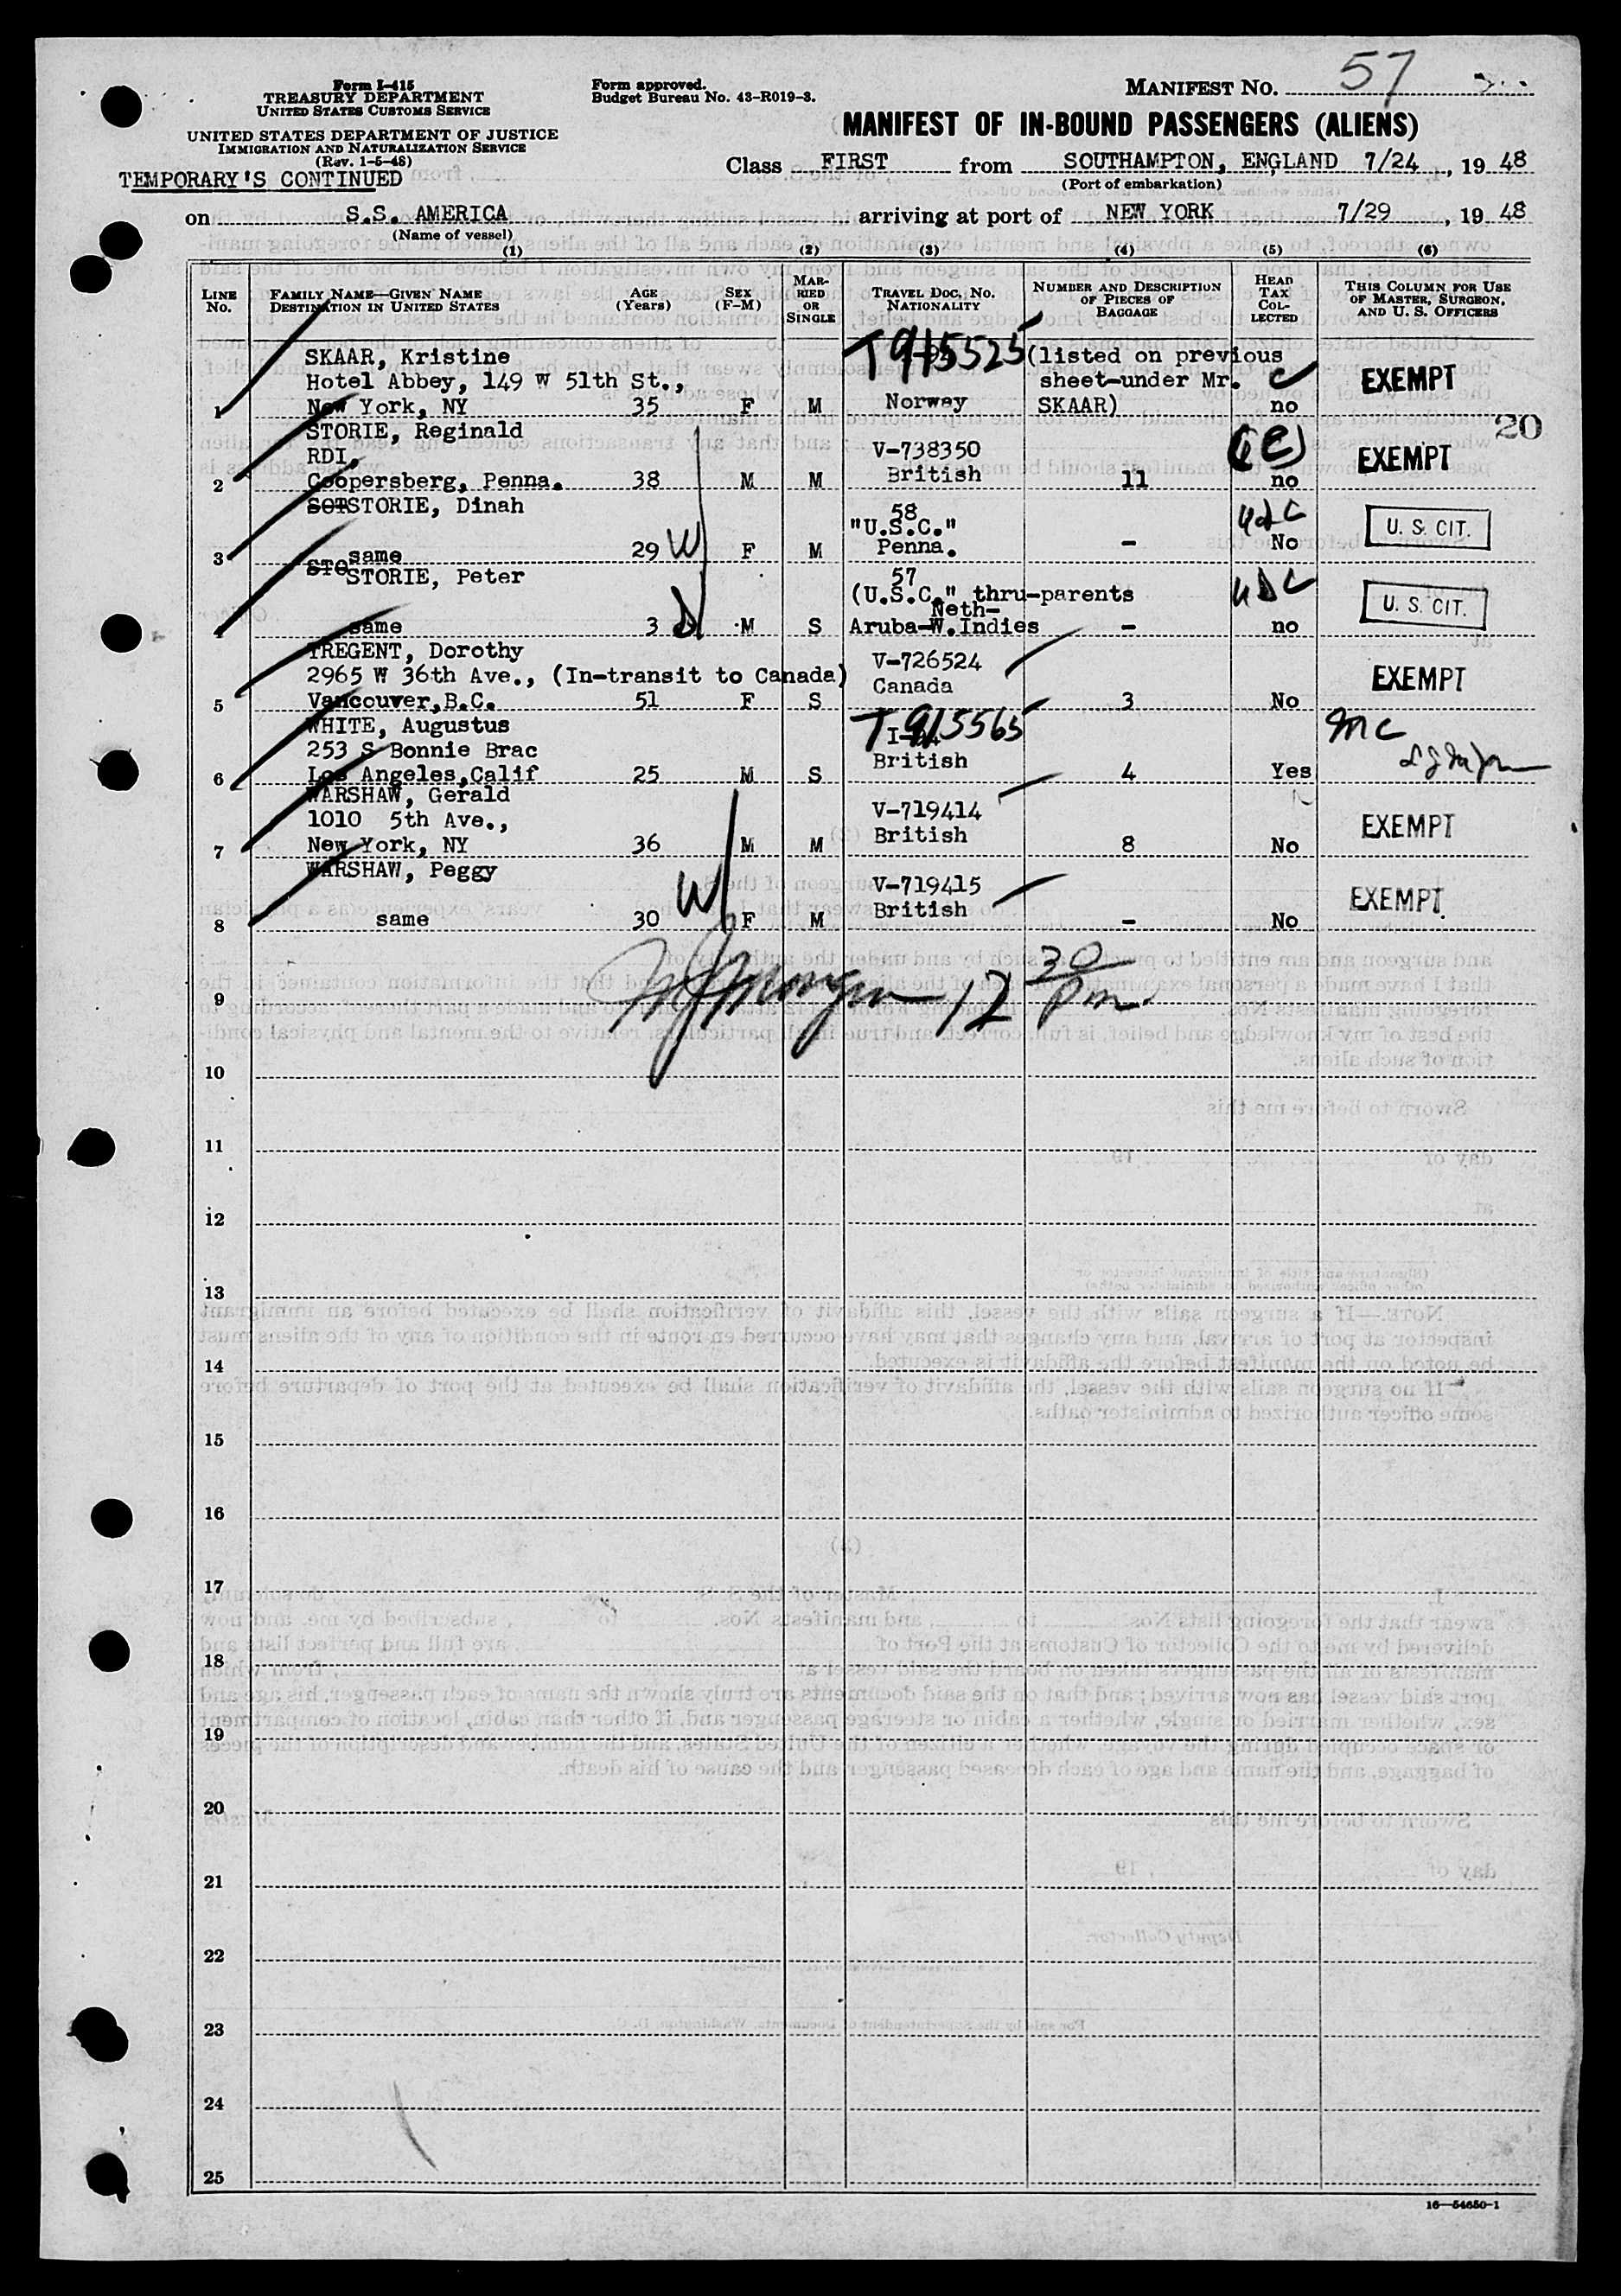 Form I-415
TREASURY DEPARTMENT
UNITED STATES CUSTOMS SERVICE
UNITED STATES DEPARTMENT OF JUSTICE
IMMIGRATION AND NATURALIZATION SERVICE
(Rev. 1-6-48)
TEMPORARY'S CONTINUED
Form approved.
Budget Bureau No. 43-R019-3.
MANIFEST NO. 57
MANIFEST OF IN-BOUND PASSENGERS (ALIENS)
Class FIRST from SOUTHAMPTON, ENGLAND 7/24, 19 48
(Port of embarkation)
on S.S. AMERICA arriving at port of NEW YORK 7/29, 19 48
(Name of vessel)
(1) (2) (3) (4) (5) (6)
LINE NO. FAMILY NAME—GIVEN NAME DESTINATION IN UNITED STATES AGE (Years) SEX (F-M) MARRIED OR SINGLE TRAVEL DOC. NO. NATIONALITY NUMBER AND DESCRIPTION OF PIECES OF BAGGAGE HEAD TAX COLLECTED THIS COLUMN FOR USE OF MASTER, SURGEON, AND U. S. OFFICERS
SKAAR, Kristine T915525 (listed on previous
Hotel Abbey, 149 W 51th St., sheet-under Mr. C EXEMPT
1 New York, NY 35 F M Norway SKAAR) no
20
STORIE, Reginald V-738350
RDI, British EXEMPT
2 Coopersberg, Penna. 38 M M 11 no
SOTSTORIE, Dinah 58
"U.S.C." USC U. S. CIT.
3 same 29 W F M Penna. - No
STOSTORIE, Peter 57
(U.S.C." thru-parents USC U. S. CIT.
Neth-
4 same 3 M S Aruba-W.Indies - no
TREGENT, Dorothy V-726524
2965 W 36th Ave., (In-transit to Canada) Canada EXEMPT
5 Vancouver,B.C. 51 F S 3 No
WHITE, Augustus T915565 MC
253 S Bonnie Brac British
6 Los Angeles,Calif 25 M S 4 Yes
WARSHAW, Gerald V-719414
1010 5th Ave., British EXEMPT
7 New York, NY 36 M M 8 No
WARSHAW, Peggy V-719415
British EXEMPT
8 same 30 W F M - No
12 30 pm
9
10
11
12
13
14
15
16
17
18
19
20
21
22
23
24
25
16—54650-1